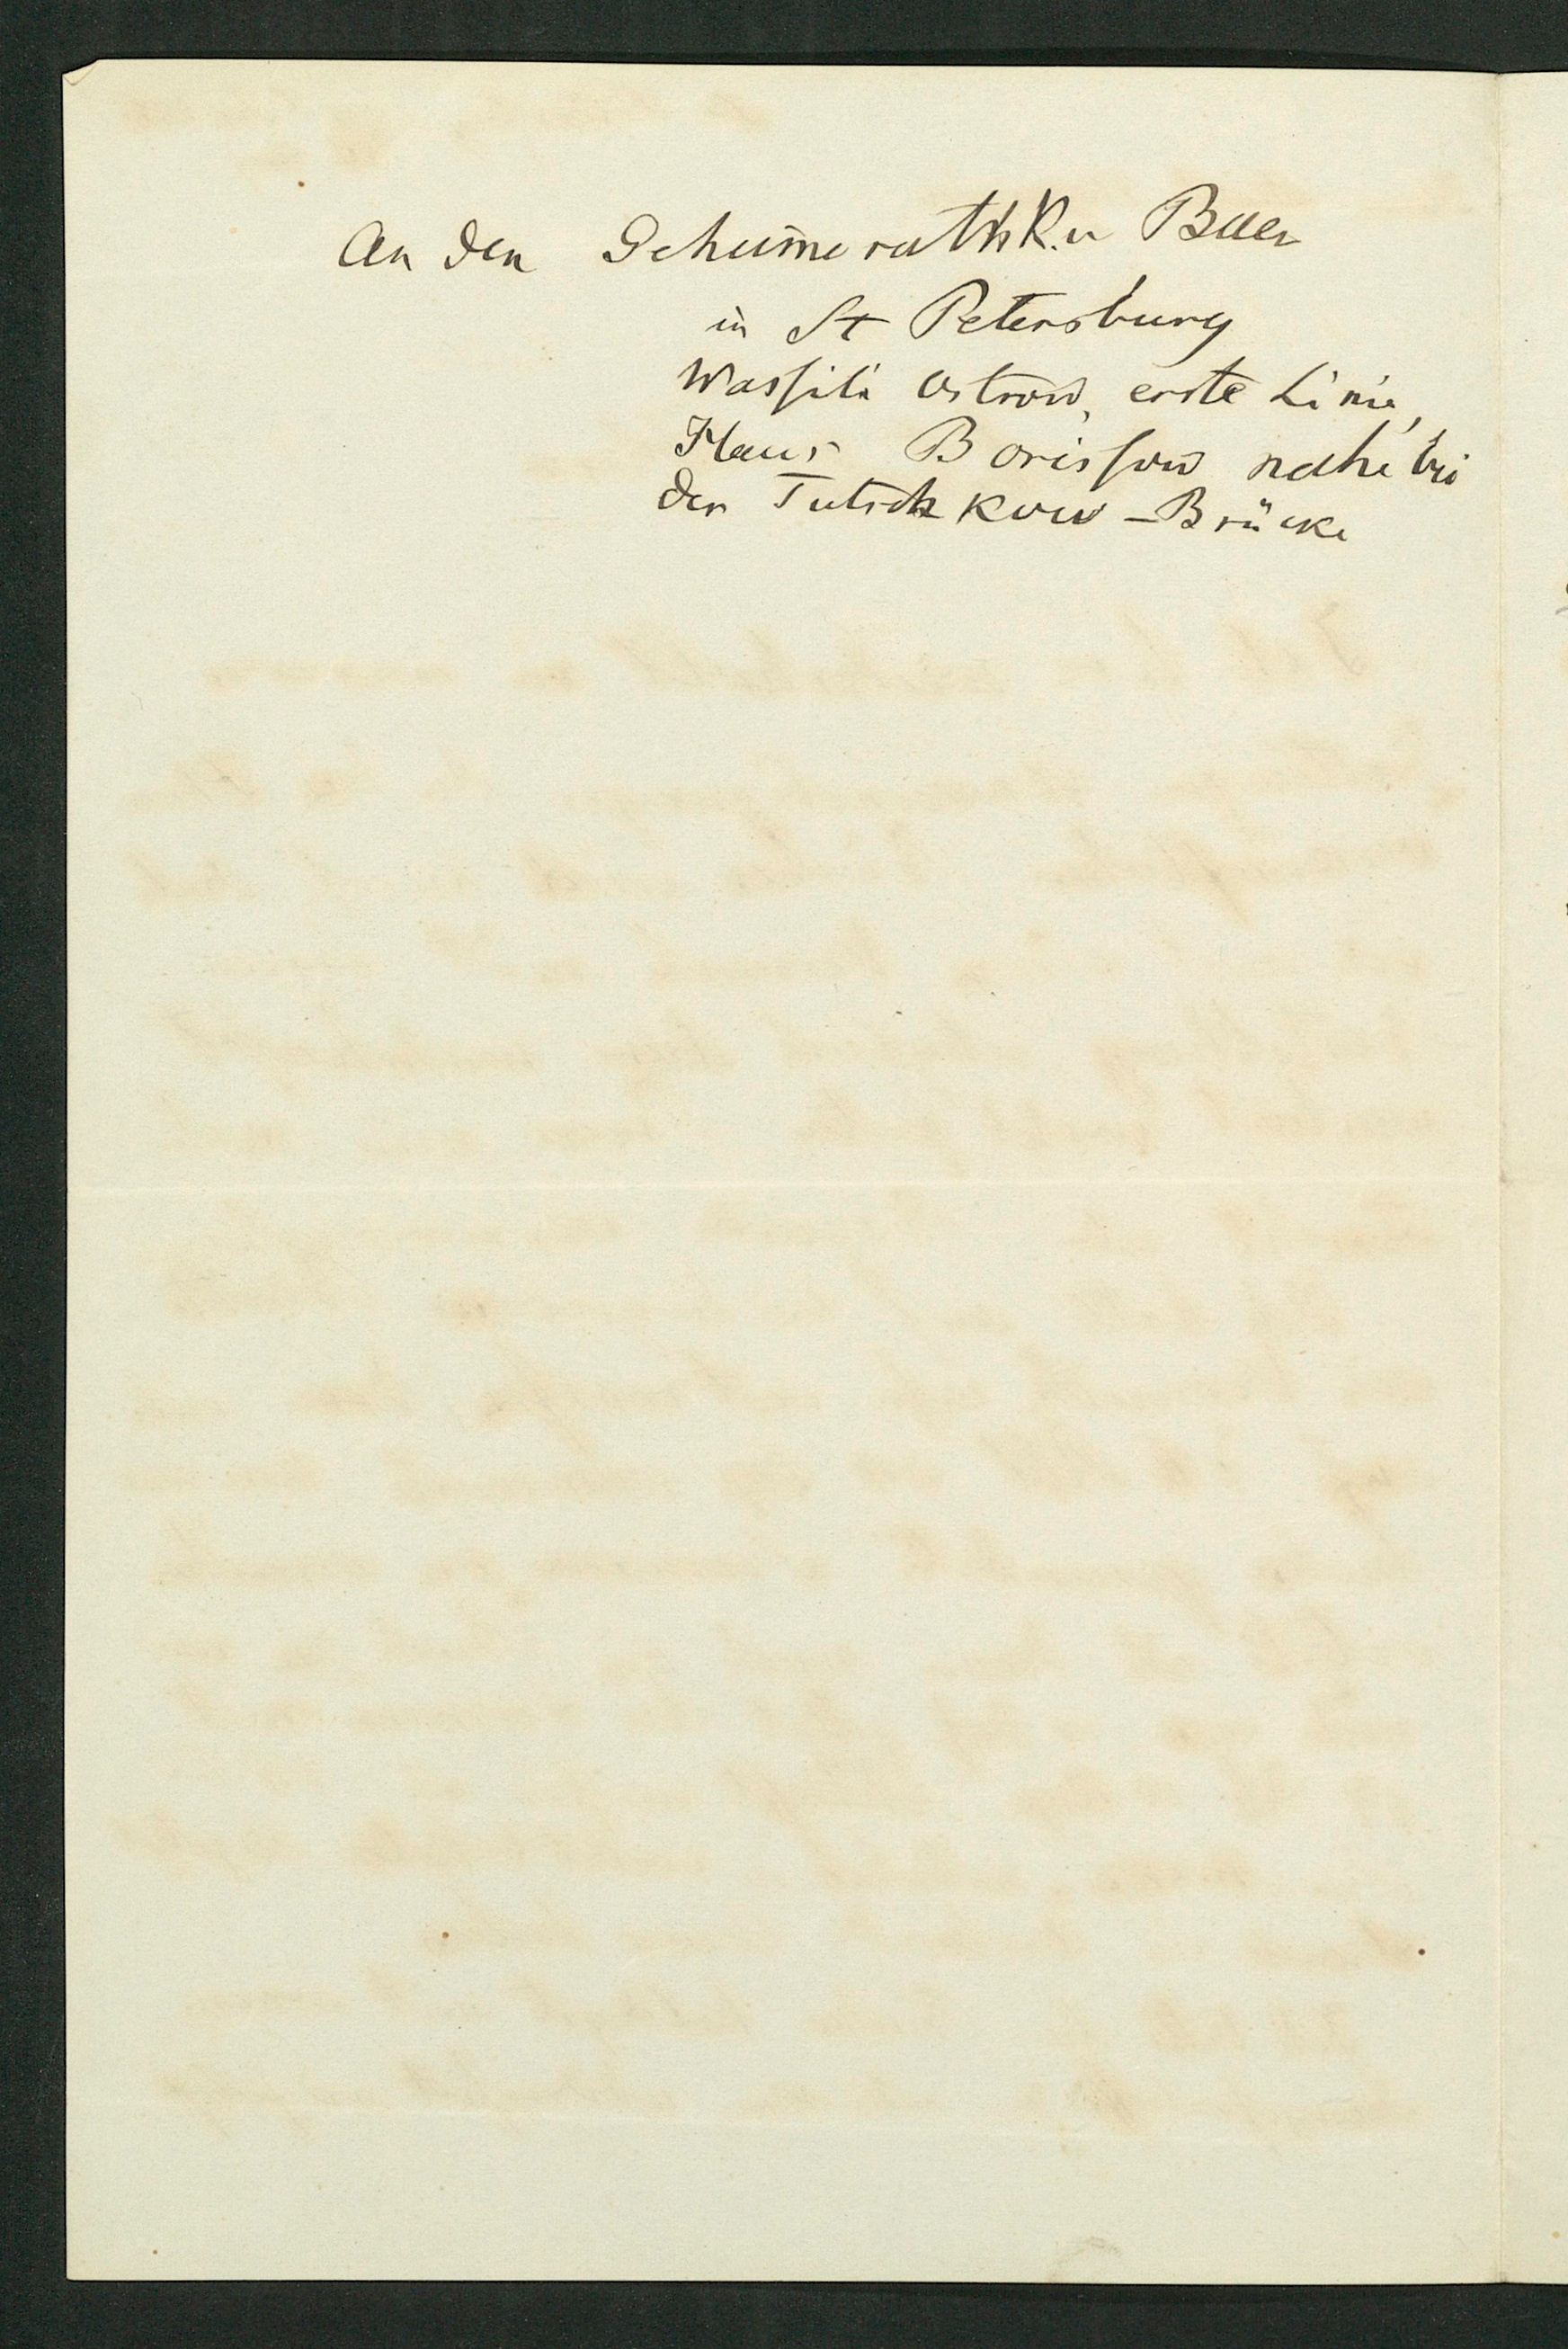 An den Geheimerath K. v Baer
in St Petersburg
Wassili Ostrow, erste Linie,
Haus Borissow nahe bei
der Tutschkow-Brücke